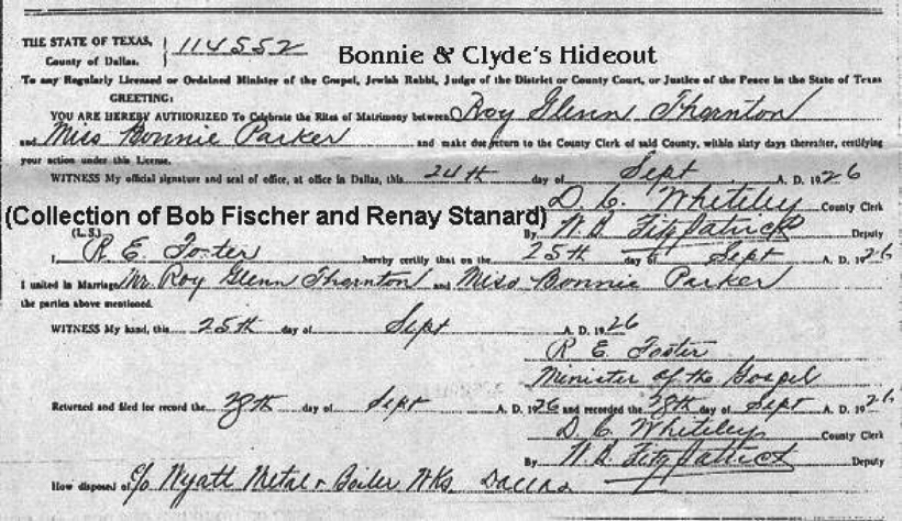 THE STATE OF TEXAS, } 114552 Bonnie & Clyde's Hideout
County of Dallas.
To any Regularly Licensed or Ordained Minister of the Gospel, Jewish Rabbi, Judge of the District or County Court, or Justice of the Peace in the State of Texas
GREETING:
YOU ARE HEREBY AUTHORIZED To Celebrate the Rites of Matrimony between Roy Glenn Thornton
and Miss Bonnie Parker and make due return to the County Clerk of said County, within sixty days thereafter, certifying
your action under this License.
WITNESS My official signature and seal of office, at office in Dallas, this 24th day of Sept A. D. 1926
D. C. Whiteley County Clerk
(Collection of Bob Fischer and Renay Stanard)
(L. S.) By Fitzpatrick Deputy
I, R. E. Foster hereby certify that on the 25th day of Sept A. D. 1926
I united in Marriage Mr. Roy Glenn Thornton and Miss Bonnie Parker
the parties above mentioned.
WITNESS My hand, this 25th day of Sept A. D. 1926
R. E. Foster
Minister of the Gospel
Returned and filed for record the 28th day of Sept A. D. 1926 and recorded the 28th day of Sept A. D. 1926
D. C. Whiteley County Clerk
By Fitzpatrick Deputy
How disposed of c/o Wyatt Metal & Boiler Wks. Dallas